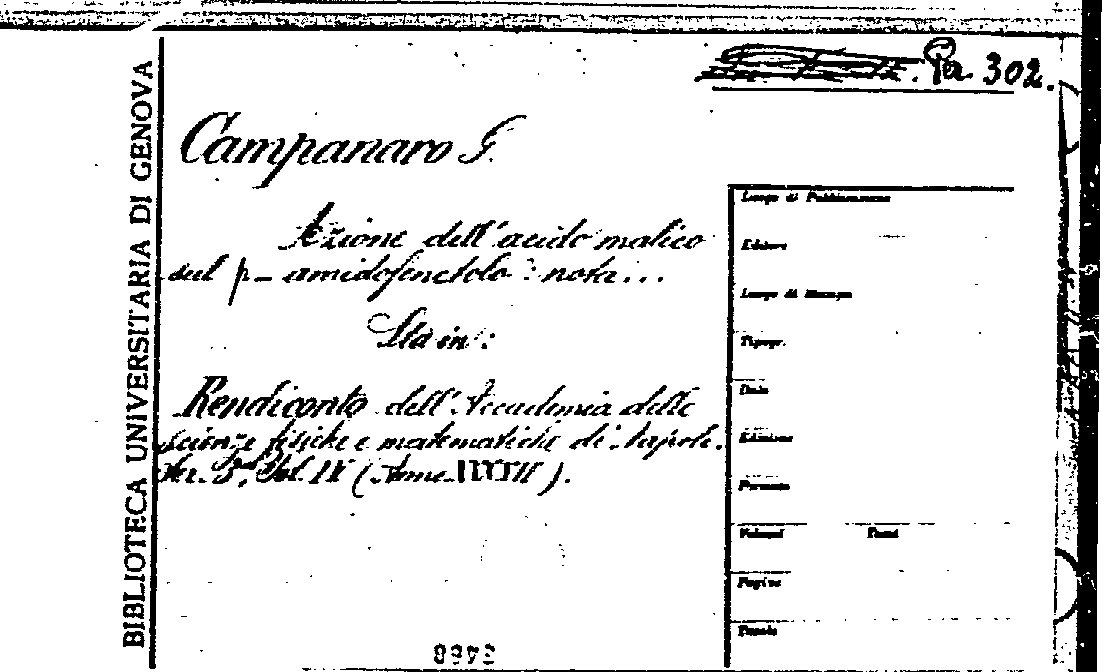 Pa. 302.
BIBLIOTECA UNIVERSITARIA DI GENOVA
Campanaro G.
Azione dell'acido malico
sul p- amidofenetolo : nota...
Sta in :
Rendiconto dell'Accademia delle
scienze fisiche e matematiche di Napoli.
Ser. 3ª, Vol. IV (Anno
Luogo di Pubblicazione
Editore
Luogo di Stampa
Tipogr.
Data
Edizione
Formato
Volumi Tomi
Pagine
Tavole